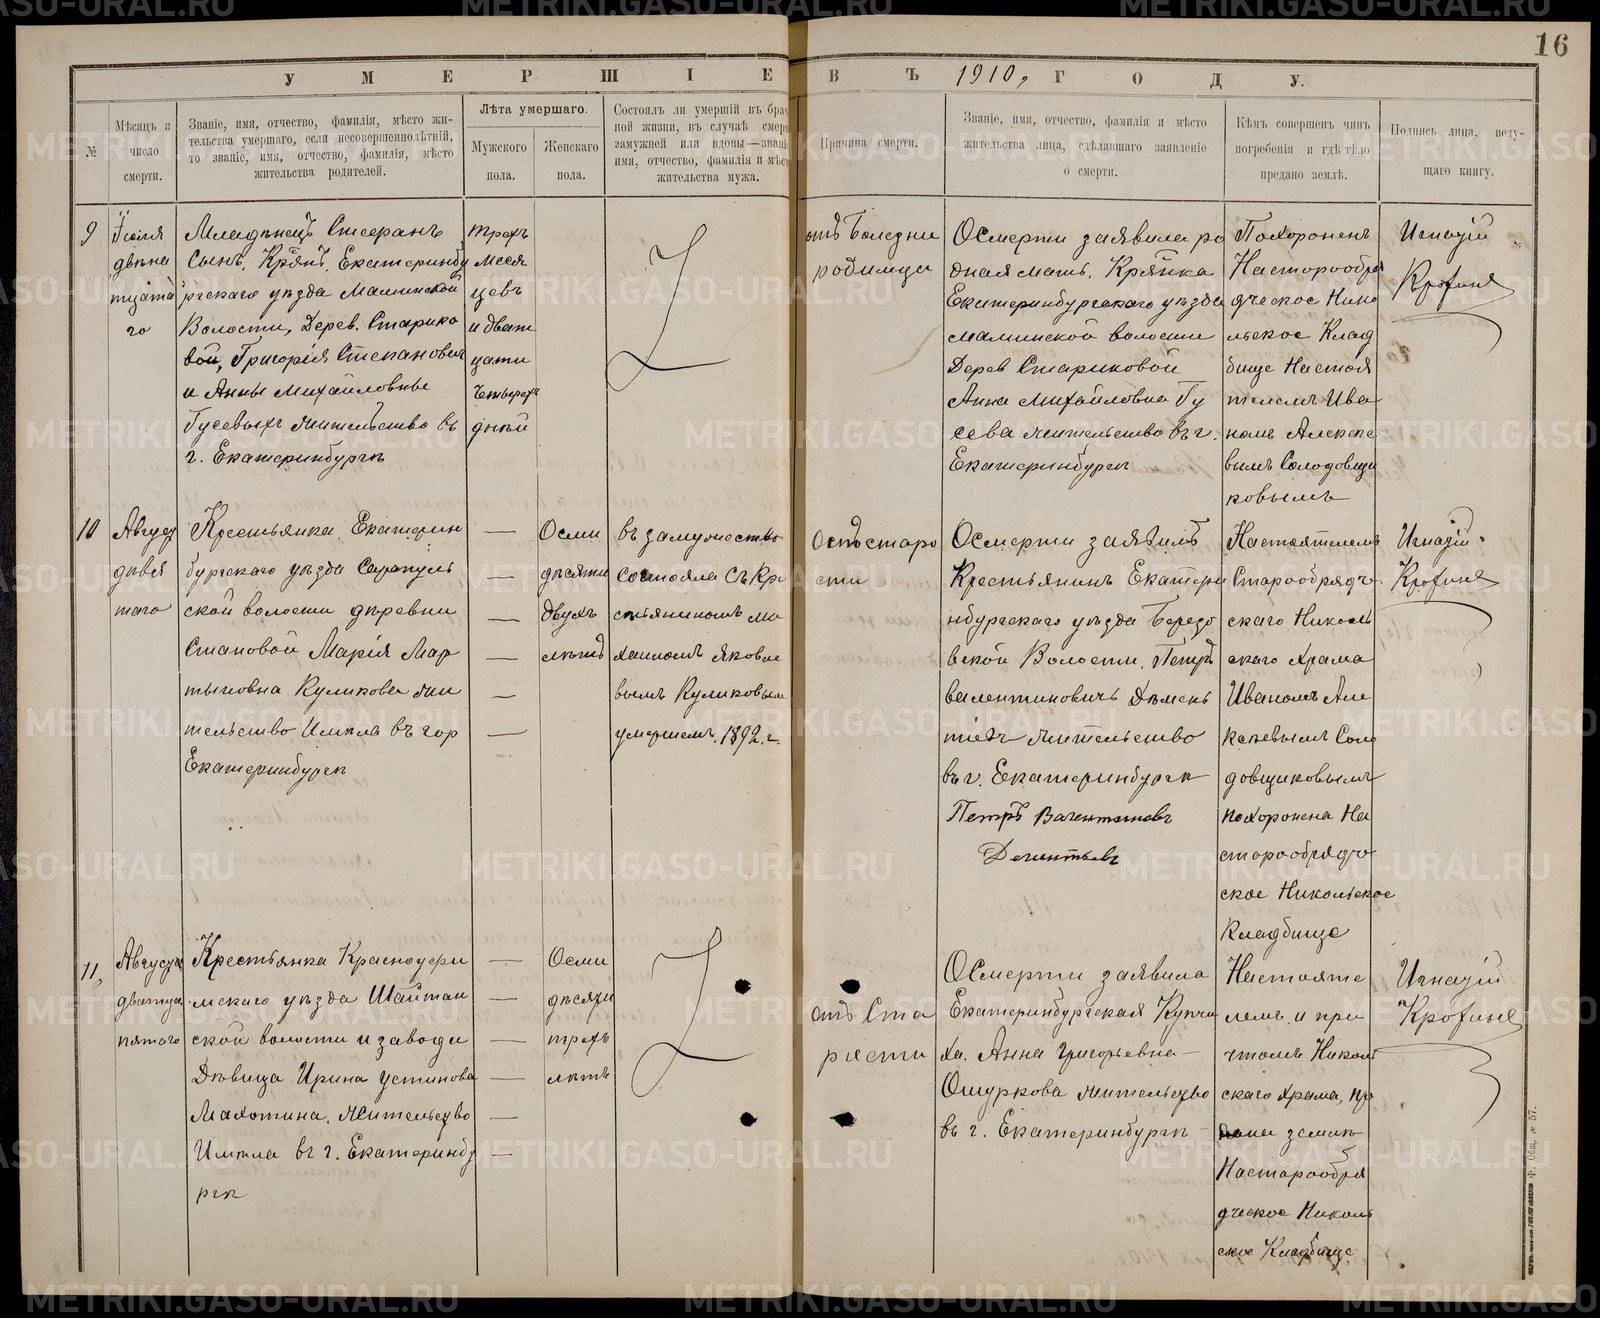 16
УМЕРШІЕ ВЪ 1910, ГОДУ.
№
Мѣсяцъ и
число
смерти.
Званіе, имя, отчество, фамилія, мѣсто жи-
тельства умершаго, если несовершеннолѣтній,
то званіе, имя, отчество, фамилія, мѣсто
жительства родителей.
Лѣта умершаго.
Мужского
пола.
Женскаго
пола.
Состоялъ ли умершій въ брач
ной жизни, въ случаѣ смерт
замужней или вдовы—званіе
имя, отчество, фамилія и мѣст
жительства мужа.
Причина смерти.
Званіе, имя, отчество, фамилія и мѣсто
жительства лица, сдѣлавшаго заявленіе
о смерти.
Кѣмъ совершенъ чинъ
погребенія и гдѣ тѣло
предано землѣ.
Подпись лица, веду-
щаго книгу.
9
Іюля
двѣна
тцата
го
Младѣнецъ
Сынъ, Крян, Екатеринбу
ргскаго уѣзда Маминской
Волости, Дерев. Старико
вой, Григорія Степанович
и Анны Михайловны
Гусевыхъ жительство въ
г. Екатеринбургѣ
трехъ
месея
цевъ
и дват
цати
четырех
дней
отъ болезни
родимца
О Смерти заявила ро
дная мать, Крянка
Екатеринбургскаго уѣзда
маминской волости
Дерев Стариковой
Анна Михайловна Гу
сева жительство въ г.
Екатеринбургѣ
Похороненъ
На старообря
дческое Нико
льское Клад
бище Настоя
телемъ Ива
номъ Алексе
вымъ Солодовщи
ковымъ
Игнатій
10
Август
девя
таго
Крестьянка, Екатерин
бургскаго уѣзда Сарапуль
ской волости дѣревни
Становой Марія Мар
тыновна Куликова жи
тельство Имѣла въ гор
Екатеринбургѣ
Осми
дѣсяти
двухъ
лѣтъ
въ замужество
состояла Съ Кре
стьяниномъ Ми
хаиломъ Яковле
вымъ Куликовым
умершем. 1892. г.
Отъ старо
сти
О Смерти заявилъ
Крестьянинъ Екатери
нбургскаго уѣзда Березо
вской Волости, Петръ
валентиновичъ Дѣмень
тіевъ жительство
въ г. Екатеринбургѣ
Петръ Валентинов
Дементьевъ
Настоятелемъ
Старообрядч
скаго Николь
скаго храма
Иваномъ Але
ксеевымъ Соло
довщиковымъ
похоронена На
старообрядче
ское Никольское
Кладбище
Игнатій
11,
Августа
дватца
пятаго
Крестьянка Красноуфи
мскаго уѣзда Шайтан
ской волости и завода
Дѣвица Ирина Устинова
Махотина, жительство
Имѣла въ г. Екатеринбу
ргѣ
Осми
дѣсяти
трехъ
лѣтъ
отъ Ста
рости
О Смерти заявила
Екатеринбургская Купчи
ха. Анна Григорьевна
Ошуркова жительство
въ г. Екатеринбургѣ
Настояте
лемъ и при
чтомъ Николь
скаго храма, пре
дана землѣ
На старообря
дческое Николь
ское Кладбище
Игнатій
METRIKI.GASO-URAL.RU